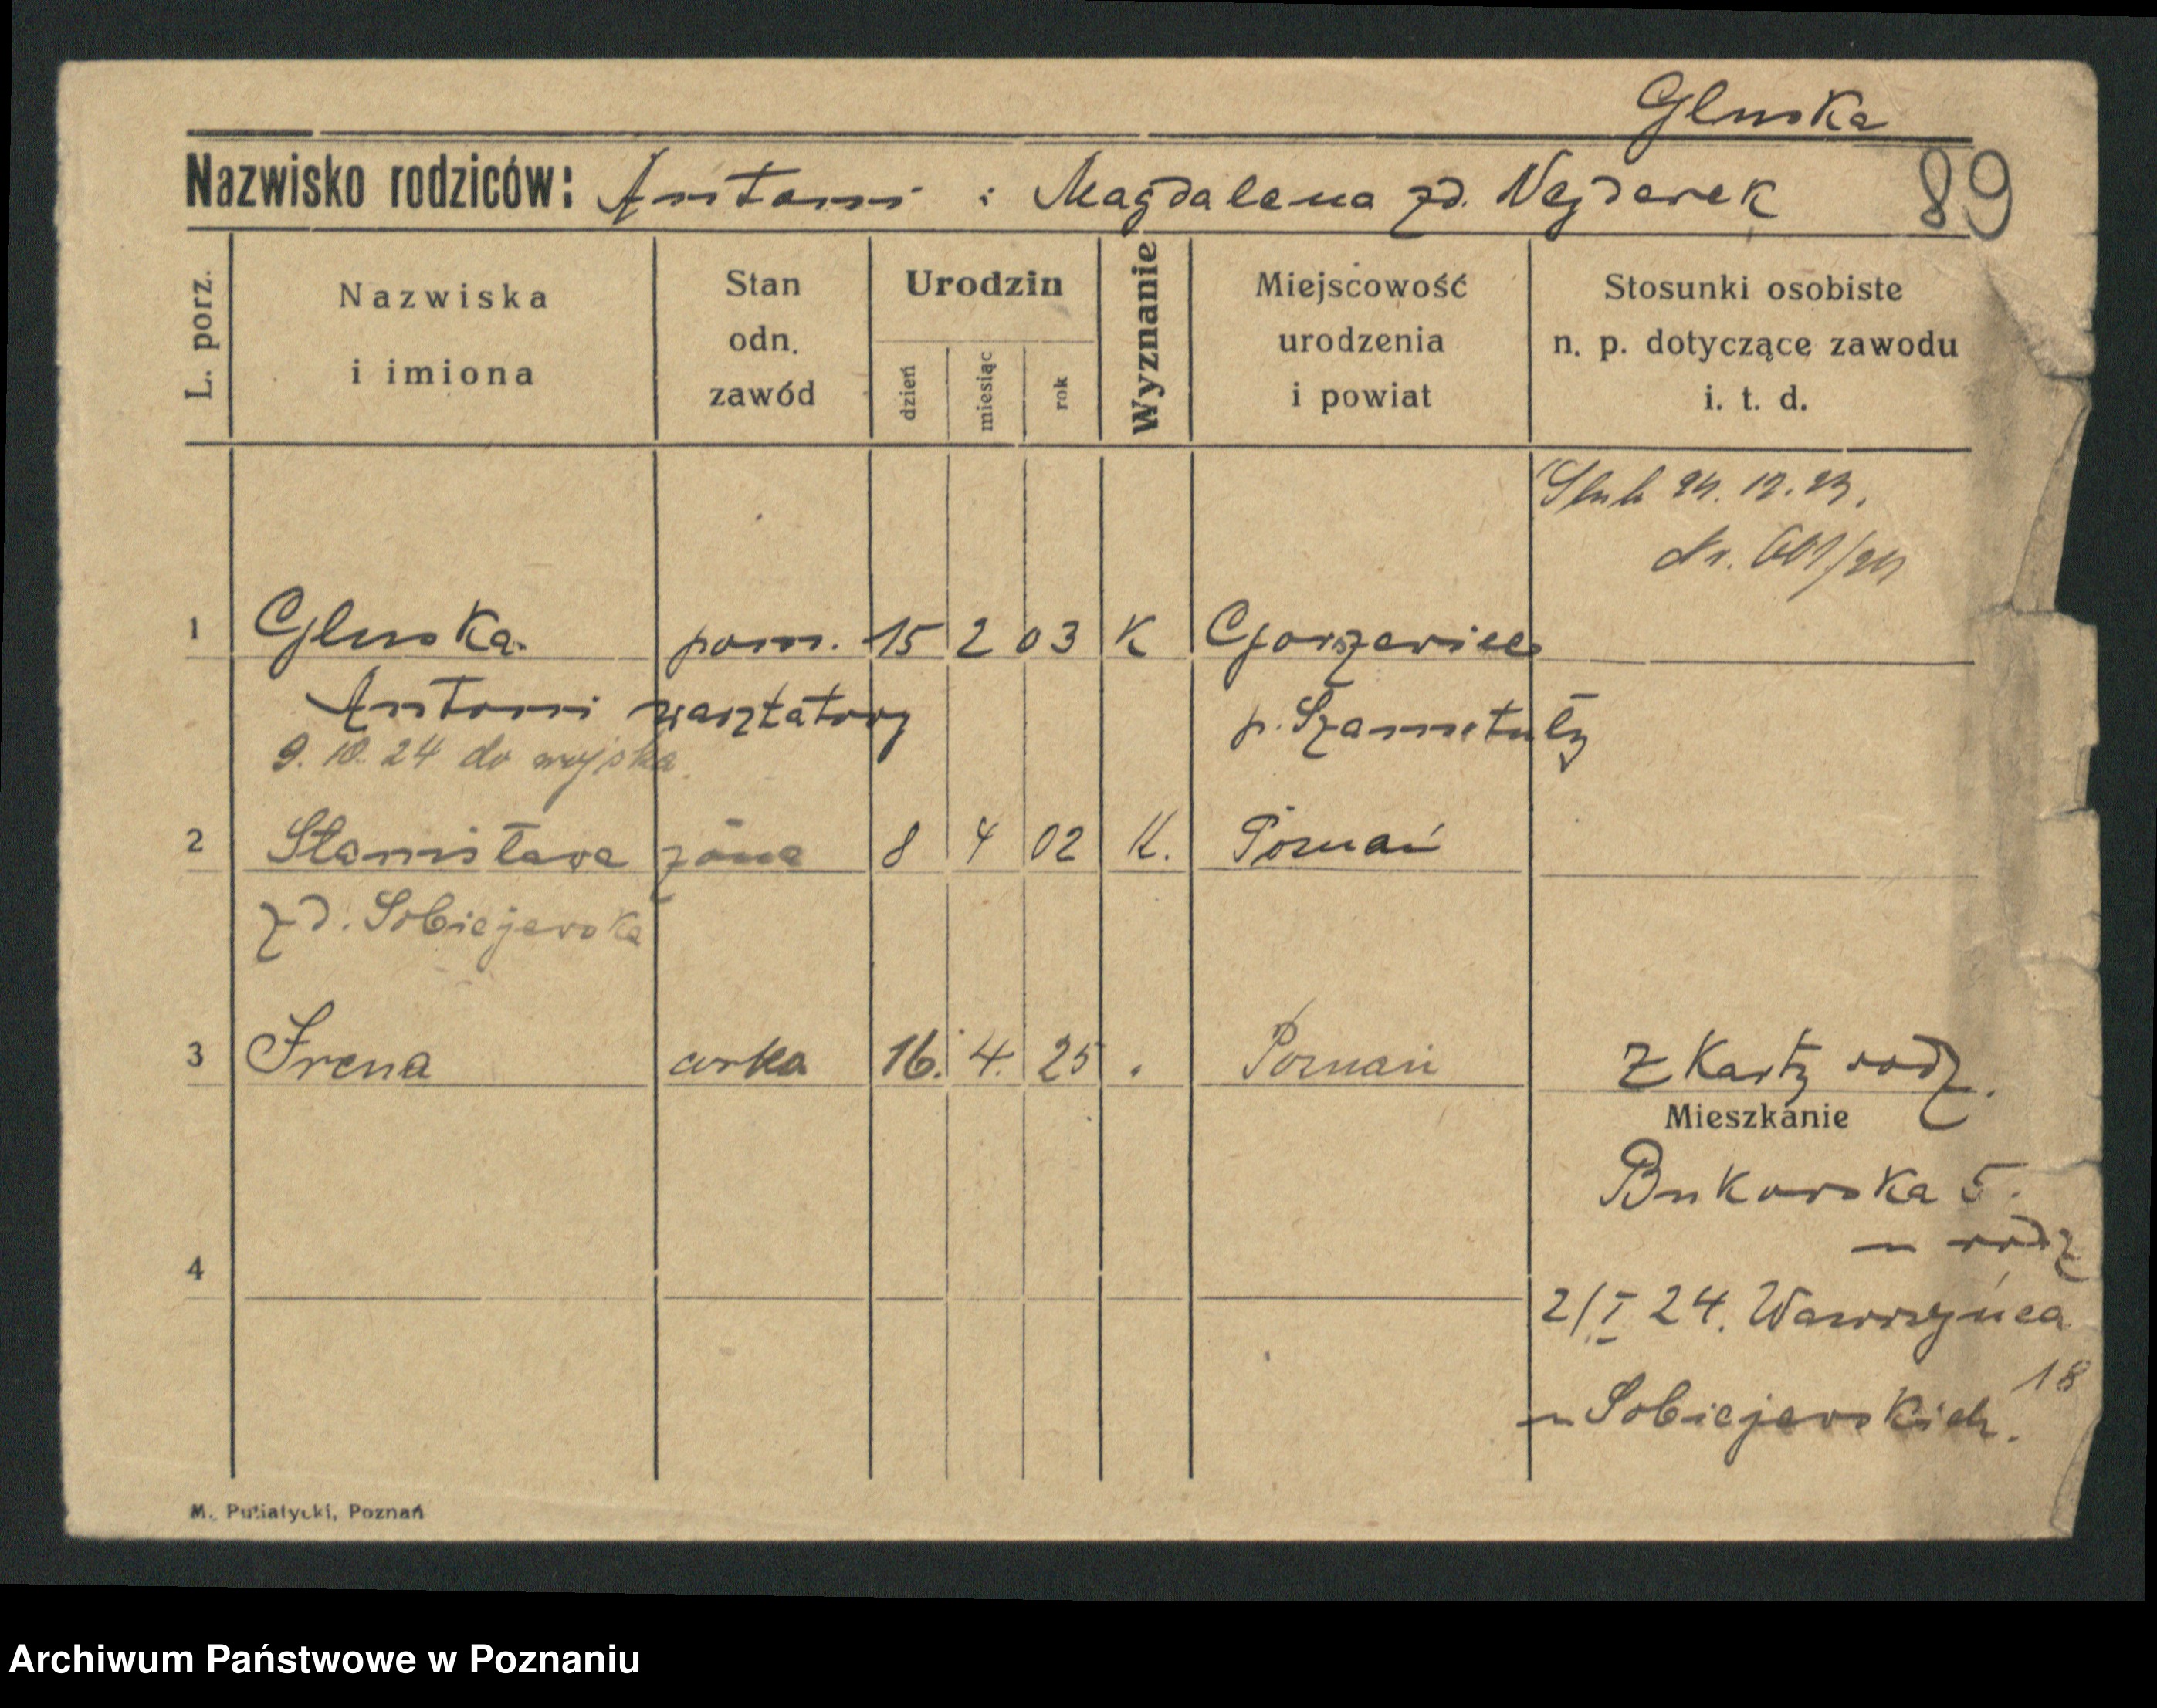 Gluska
Nazwisko rodziców: Antoni i Magdalena zd. Nejderek 89
L. porz.
Nazwiska
i imiona
Stan
odn.
zawód
Urodzin
dzień
miesiąc
rok
Wyznanie
Miejscowość
urodzenia
i powiat
Stosunki osobiste
n. p. dotyczące zawodu
i. t. d.
Ślub 24. 12. 23.
1 Gluska pom. 15 2 03 K Gorszewice
Antoni warsztatowy p. Szamotuły
9. 10. 24 do wojska
2 Stanisława żona 8 4 02 K. Poznań
zd. Sobiejewska
3 Irena corka 16. 4. 25 „ Poznań z Karty rodz.
Mieszkanie
Bukowska 5.
u rodz
4
2/I 24. Wawrzyńca
18
u Sobiejewskich.
M. Putiatycki, Poznań
Archiwum Państwowe w Poznaniu